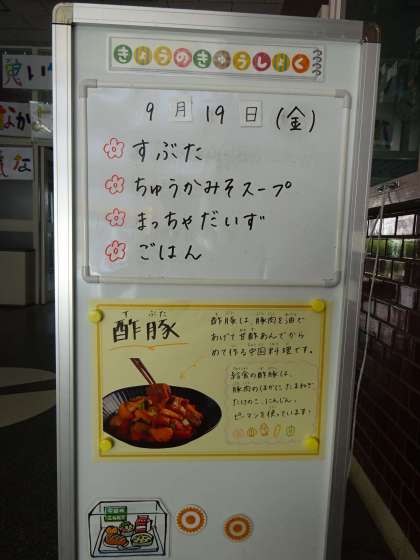 きょうのきゅうしょく
9月19日(金)
すぶた
ちゅうかみそスープ
まっちゃだいず
ごはん
すぶた
酢豚
酢豚は、豚肉を油で
あげて甘酢あんでから
めて作る中国料理です。
給食の酢豚は、
豚肉のほかに、たまねぎ、
たけのこ、にんじん、
ピーマンを使っています!